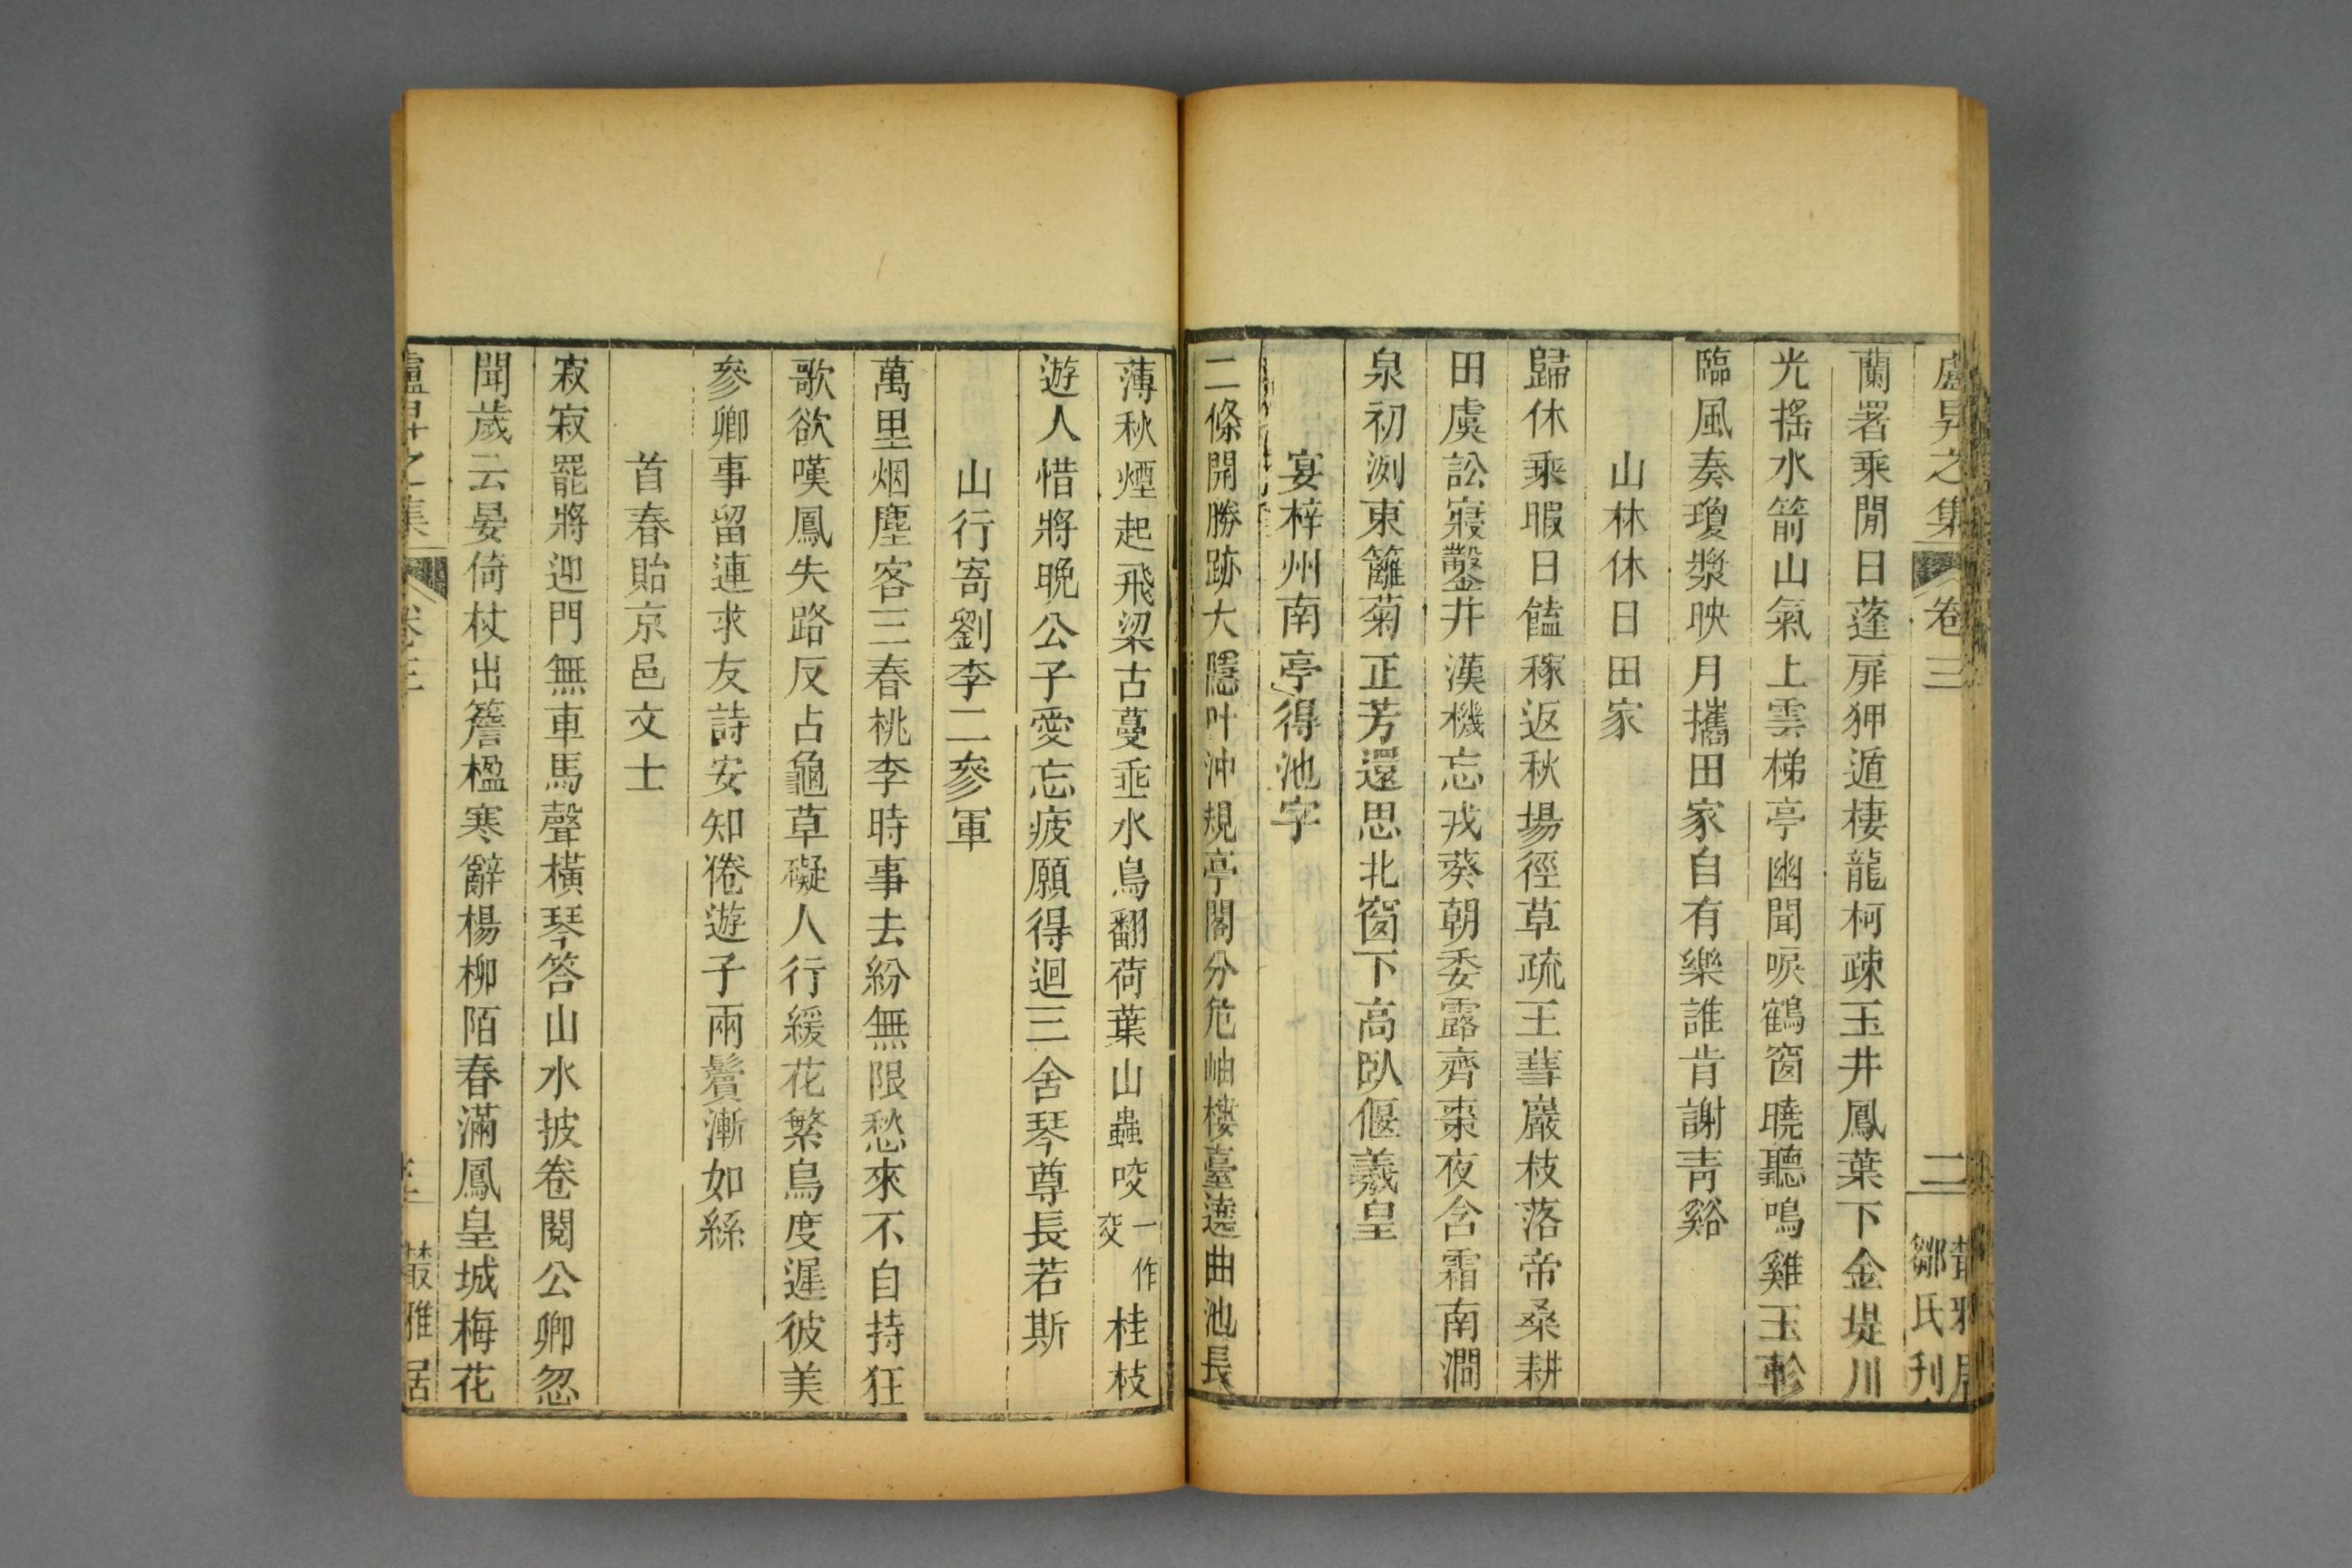 盧昇之集 卷三 二 叢雅居鄒氏刊
蘭署乘閒日蓬扉狎遁棲龍柯疎玉井鳳葉下金堤川
光搖水箭山氣上雲梯亭幽聞唳鶴窗曉聽鳴雞玉軫
臨風奏瓊漿映月攜田家自有樂誰肯謝青谿
山林休日田家
歸休乘暇日饁稼返秋場徑草疏王彗巖枝落帝桑耕
田虞訟寢鑿井漢機忘戎葵朝委露齊棗夜含霜南澗
泉初洌東籬菊正芳還思北窗下高臥偃羲皇
宴梓州南亭得池字
二條開勝跡大隱叶沖規亭閣分危岫樓臺遶曲池長
薄秋煙起飛梁古蔓垂水鳥翻荷葉山蟲咬一作交桂枝
遊人惜將晚公子愛忘疲願得迴三舍琴尊長若斯
山行寄劉李二參軍
萬里烟塵客三春桃李時事去紛無限愁來不自持狂
歌欲嘆鳳失路反占龜草礙人行緩花繁鳥度遲彼美
參卿事留連求友詩安知倦遊子兩鬢漸如絲
首春貽京邑文士
寂寂罷將迎門無車馬聲橫琴答山水披卷閱公卿忽
聞歲云晏倚杖出簷楹寒辭楊柳陌春滿鳳皇城梅花
盧昇之集 卷三 叢雅居